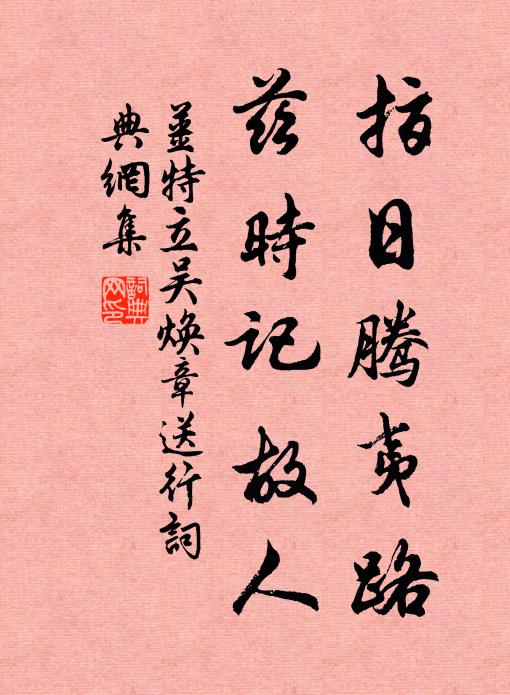 指日腾夷路
兹時记故人
姜特立吴焕章送行詞
典網集
詞典网印